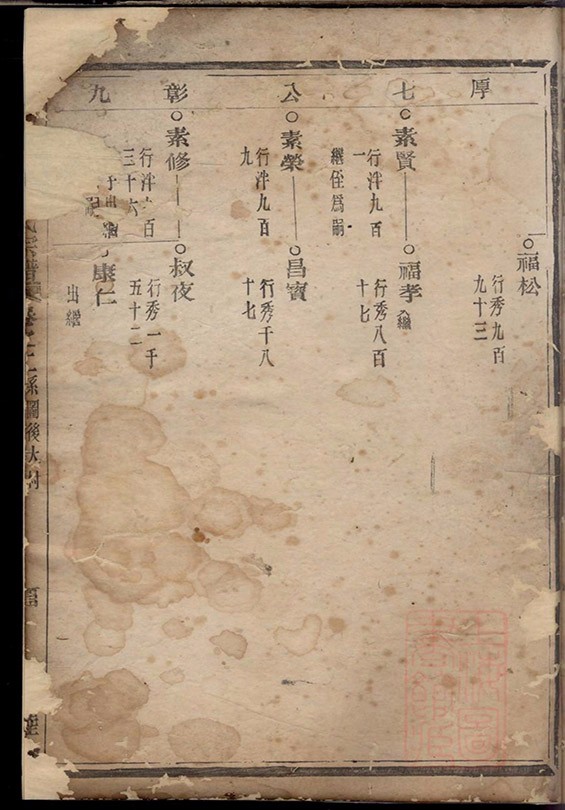 厚
七
公
彰
九
福松
行秀九百
九十三
素賢
行泮九百
一
繼侄爲嗣
福孝
入繼
行秀八百
十七
素榮
行泮九百
九
昌寶
行秀千八
十七
素修
行泮
百
三十六
叔夜
行秀一千
五十二
出繼
嗣
康仁
出繼
系圖後大